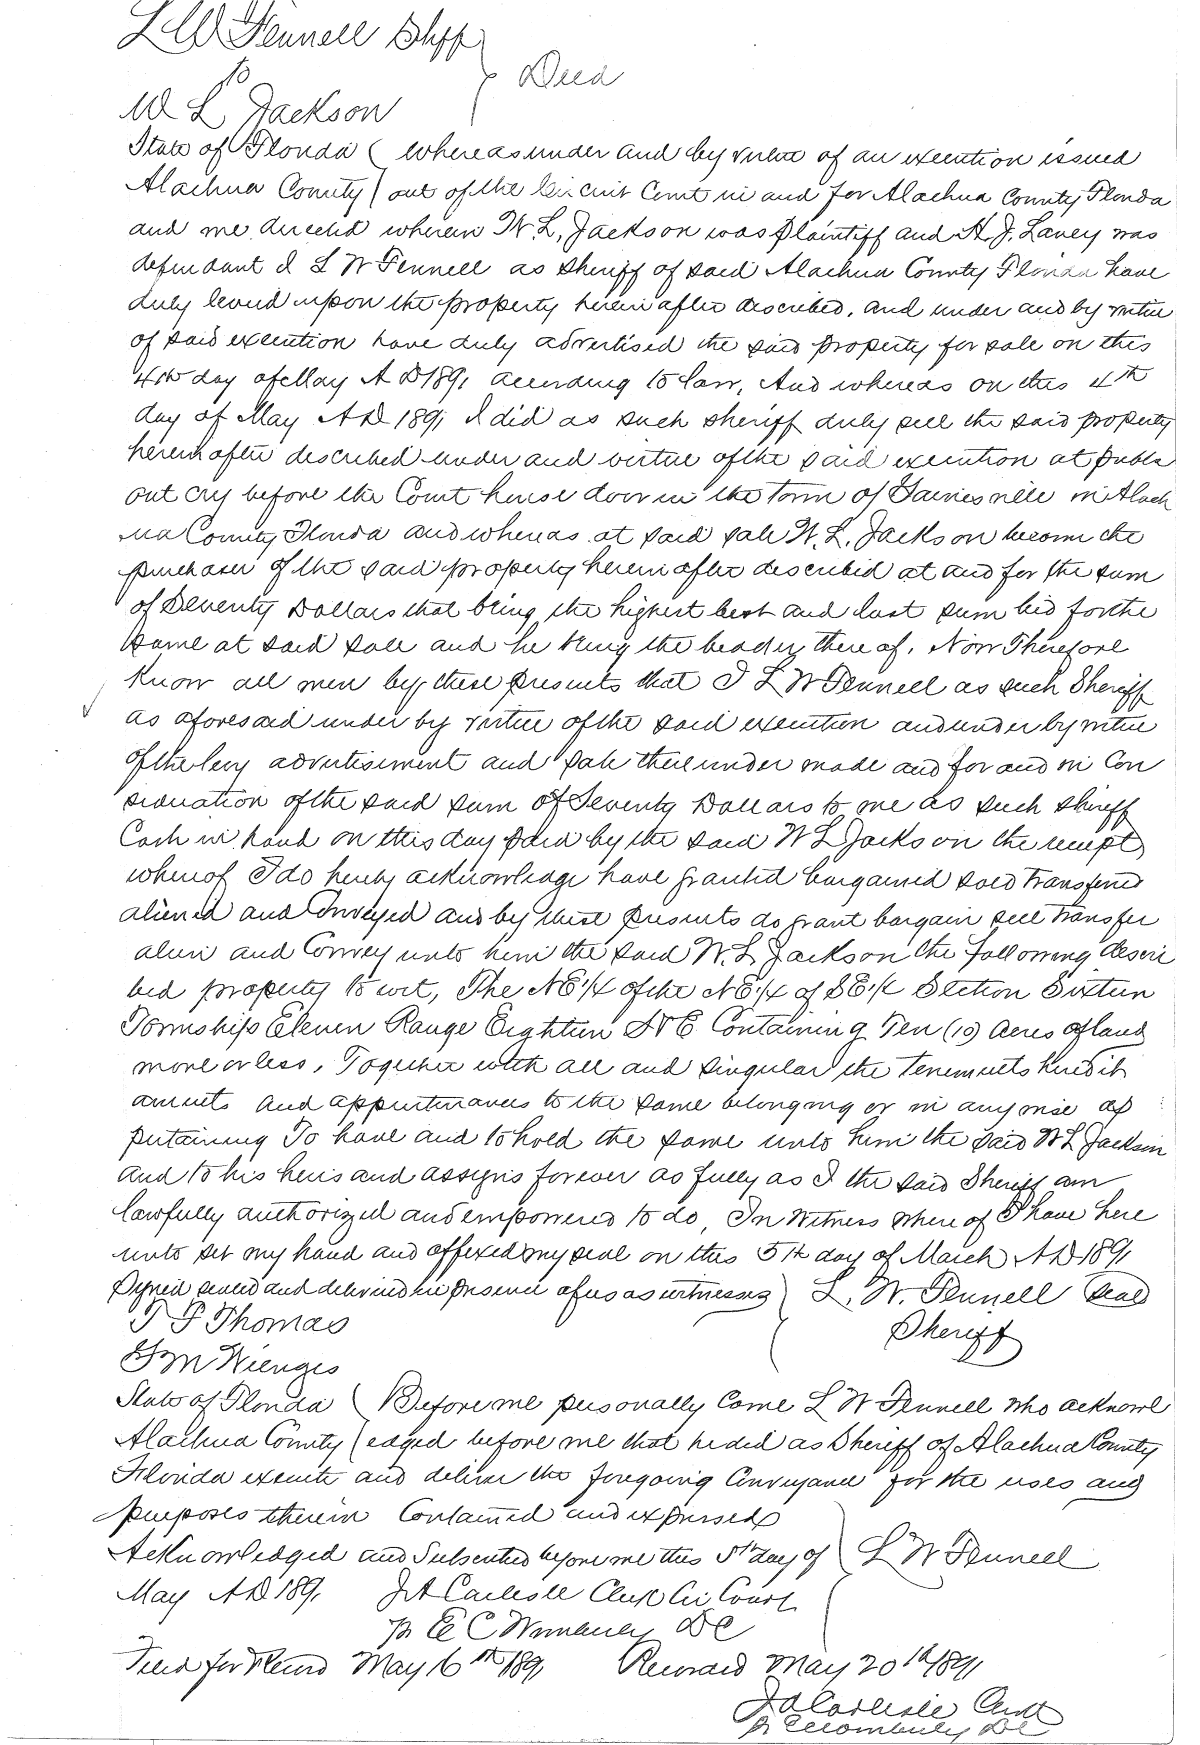 L W Fennell Shff
to
Deed
W L Jackson
State of Florida ( Whereas under and by virtue of an execution issued
Alachua County ( out of the Circuit Court in and for Alachua County Florida
and me directed wherein W. L. Jackson was plaintiff and H. J. Laney was
defendant I L W Fennell as Sheriff of said Alachua County Florida have
duly levied upon the property herein after described, and under and by virtue
of said execution have duly advertised the said property for sale on this
4th day of May A D 1891 according to law, And whereas on this 4th
day of May A D 1891 I did as such sheriff duly sell the said property
herein after described under and virtue of the said execution at public
out cry before the Court house door in the town of Gainesville in Alach
ua County Florida and whereas at said sale W. L. Jackson become the
purchaser of the said property herein after described at and for the sum
of Seventy Dollars that being the highest best and last sum bid for the
same at said sale and he being the beader there of, Now Therefore
Know all men by these presents that I L W Fennell as such Sheriff
as aforesaid under by virtue of the said execution and under by virtue
of the levy advertisement and sale there under made and for and in Con
sideration of the said sum of Seventy Dollars to me as such sheriff
Cash in hand on this day paid by the said W L Jackson the receipt
whereof I do hereby acknowledge have granted bargained sold transfered
aliened and Conveyed and by these presents do grant bargain sell transfer
alien and Convey unto him the said W. L Jackson the following descri
bed property to wit, The NE 1/4 of the NE 1/4 of SE 1/4 Section Sixteen
Township Eleven Range Eighteen S & E Containing Ten (10) Acres of land
more or less, Together with all and singular the tenements heredit
aments and appurtenances to the same belonging or in any wise ap
pertaining To have and to hold the same unto him the said W L Jackson
and to his heirs and assigns forever as fully as I the said Sheriff am
lawfully authorized and empowered to do, In Witness where of I have here
unto set my hand and affixed my seal on this 5th day of March A D 1891
Signed sealed and delivered in presence of us as witnesses ) L. W. Fennell Seal
T F Thomas
Sheriff
Wienges
State of Florida ( Before me personally Came L W Fennell who acknowl
Alachua County ( edged before me that he did as Sheriff of Alachua County
Florida execute and deliver the foregoing Conveyance for the uses and
purposes therein Contained and expressed
Acknowledged and Subscribed before me this 5th day of ( L W Fennell
May A D 1891 J A Carlisle Clerk Cir Court
pr E C D C
Filed for Record May 6th 1891 Recorded May 20th 1891
J A Carlisle Clerk
pr D C